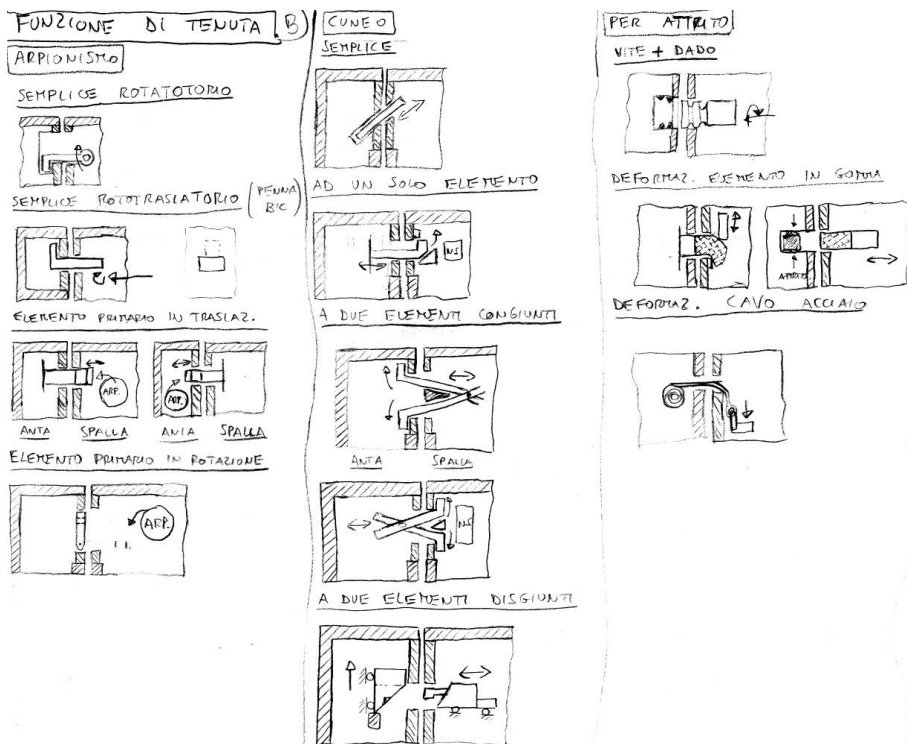 FUNZIONE DI TENUTA B)
ARPIONISMO
SEMPLICE ROTATOTORIO
SEMPLICE ROTOTRASLATORIO (PENNA BIC)
ELEMENTO PRIMARIO IN TRASLAZ.
ARP.
ARP.
ANTA SPALLA ANTA SPALLA
ELEMENTO PRIMARIO IN ROTAZIONE
ARP.
CUNEO
SEMPLICE
AD UN SOLO ELEMENTO
NS
A DUE ELEMENTI CONGIUNTI
ANTA SPALLA
NS
A DUE ELEMENTI DISGIUNTI
PER ATTRITO
VITE + DADO
DEFORMAZ. ELEMENTO IN GOMMA
ATTRITO
DEFORMAZ. CAVO ACCIAIO